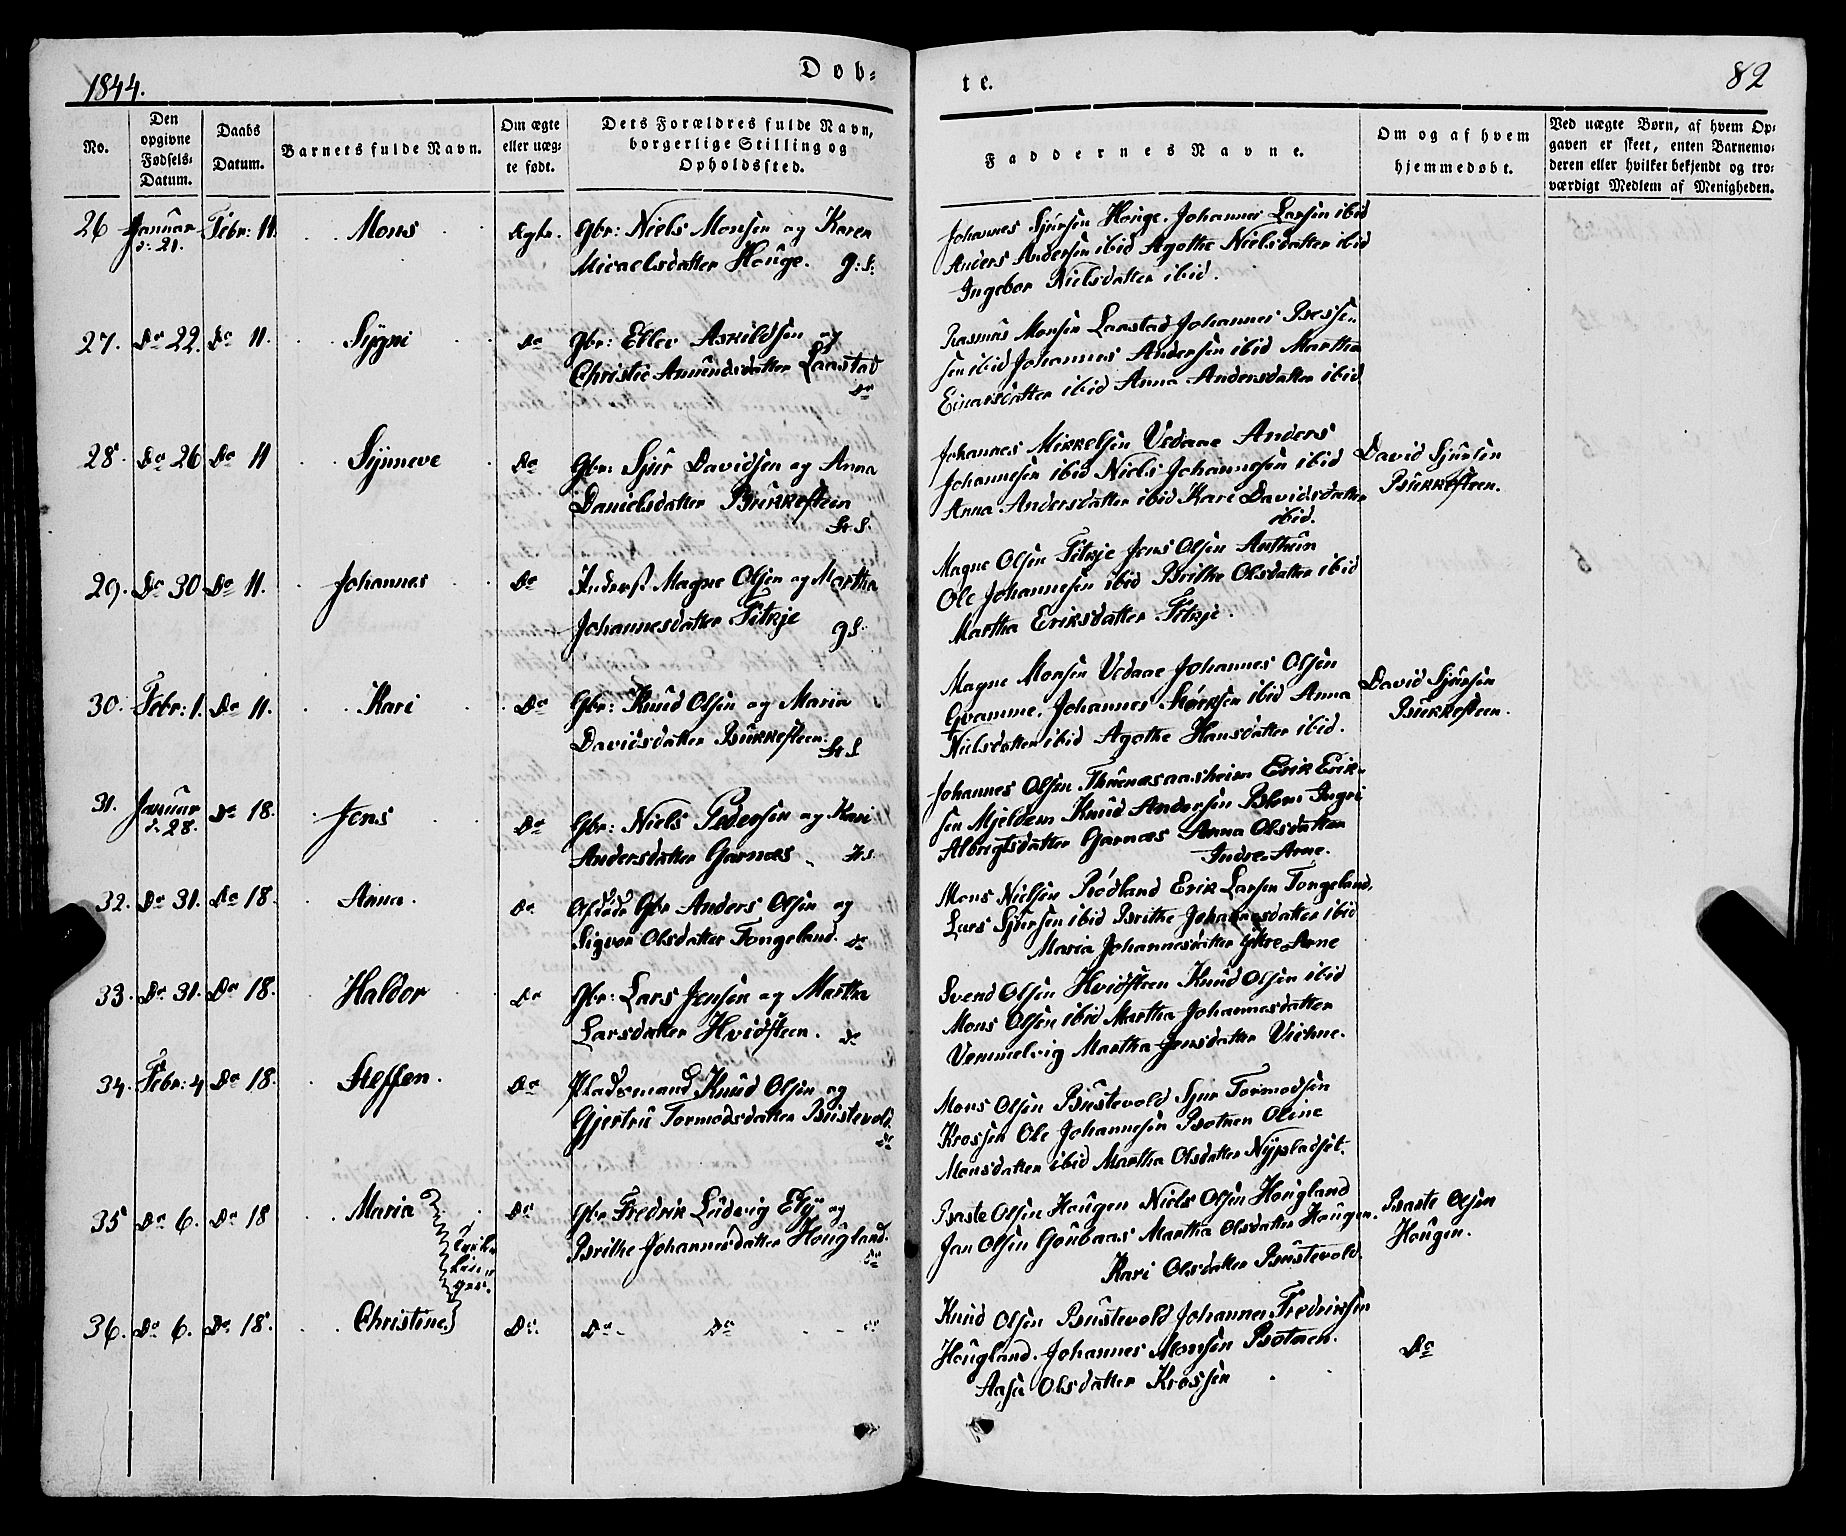 1844.
Døb-
te.
82
No.
Den
opgivne
Fødsels-
Datum.
Daabs
Datum.
Barnets fulde Navn.
Om ægte
eller uæg-
te født.
Dets Forældres fulde Navn,
borgerlige Stilling og
Opholdssted.
Faddernes Navne.
Om og af hvem
hjemmedøbt.
Ved uægte Børn, af hvem Op-
gaven er skeet, enten Barnemo-
deren eller hvilket bekjendt og tro-
værdigt Medlem af Menigheden.
26 Januar d: 21. Febr: 11. Mons Ægte. Gbr: Niels Monsen og Karen
Micaelsdatter Houge. g: s:
Johannes Sjursen Houge. Johannes Larsen ibid
Anders Andersen ibid Agothe Nielsdatter ibid
Ingebor Nielsdatter ibid.
27. Do 22. Do 11. Sygni Do Gbr: Ellev Askildsen og
Christie Amundsdatter Laastad
Do
Rasmus Monsen Laastad Johannes Bessen-
sen ibid Johannes Andersen ibid Martha
Einarsdatter ibid Anna Andersdatter ibid
28. Do 26 Do 11 Synneve Do Gbr: Sjur Davidsen og Anna
Danielsdatter Bukkesteen
H. S.
Johannes Mikkelsen Vedaae Anders
Johannesen ibid Niels Johannesen ibid
Anna Andersdatter ibid Kari Davidsdatter
ibid.
David Sjursen
Bukkesteen.
29. Do 30 Do 11. Johannes Do Inderst Magne Olsen og Martha
Johannesdatter Fitkje g s.
Magne Olsen Fitkje Jens Olsen Anthun
Ole Johannesen ibid Brithe Olsdatter ibid
Martha Eriksdatter Fitkje.
30. Febr: 1. Do 11. Kari Do Gbr: Knud Olsen og Maria
Davidsdatter Bukkesteen. H. S
Magne Monsen Vedaae Johannes Olsen
Gvamme. Johannes Størksen ibid Anna
Nielsdatter ibid Agothe Hansdatter ibid.
David Sjursen
Bukkesteen.
31. Januar d. 28. Do 18. Jens Do Gbr: Niels Pedersen og Kari
Andersdatter Garnæs. H. s.
Johannes Olsen Thunæsaasheim Erik Erik-
sen Mjeldem Knud Andersen Blom Ingri
Albrigtsdatter Garnæs Anna Olsdatter
Indre Arne.
32. Do 31. Do 18. Anna. Do Afdøde Gbr Anders Olsen og
Sigvor Olsdatter Tongeland. Do
Mons Nielsen Rødland Erik Larsen Tongeland,
Lars Sjursen ibid Brithe Johannesdatter ibid
Maria Johannesdatter Ytre Arne
33. Do 31. Do 18. Haldor Do Gbr: Lars Jensen og Martha
Larsdatter Hvidsteen. Do
Svend Olsen Hvidsteen Knud Olsen ibid
Mons Olsen ibid Martha Johannesdatter
Vemmelvig Martha Jensdatter Vichne.
34. Febr: 4 Do 18. Steffen. Do Pladsmand Knud Olsen og
Gjertru Tormodsdatter Bustevold.
Do
Mons Olsen Bustevold Sjur Tormodsen
Krossen Ole Johannesen Botnen Oline
Monsdatter ibid Martha Olsdatter Nypladset.
35 Do 6. Do 18 Maria Do Gbr Fredrik Ludvig Ely og
Brithe Johannesdatter Hougland.
Do
Baste Olsen Haugen Niels Olsen Hougland
Jan Olsen Goubaas Martha Olsdatter Hougen.
Kari Olsdatter Bustevold.
Baste Olsen
Hougen.
36. Do 6. Do 18. Christine Do. Do. Do Do
Knud Olsen Bustevold Johannes Fredriksen
Hougland. Johannes Monsen Botnen.
Aase Olsdatter Krossen
Do